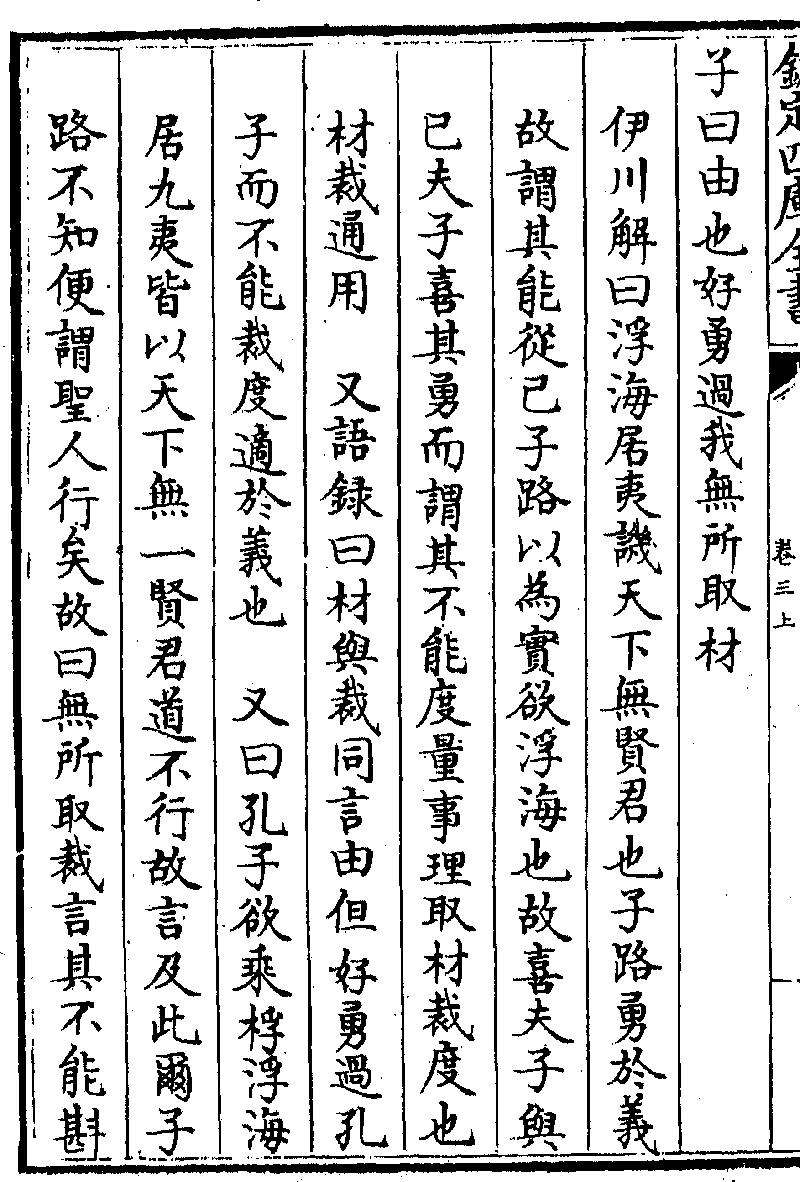 欽定四庫全書
卷三上
子曰由也好勇過我無所取材
伊川解曰浮海居夷譏天下無賢君也子路勇於義
故謂其能從已子路以為實欲浮海也故喜夫子與
已夫子喜其勇而謂其不能度量事理取材裁度也
材裁通用　又語録曰材與裁同言由但好勇過孔
子而不能裁度適於義也　又曰孔子欲乘桴浮海
居九夷皆以天下無一賢君道不行故言及此爾子
路不知便謂聖人行矣故曰無所取裁言其不能斟